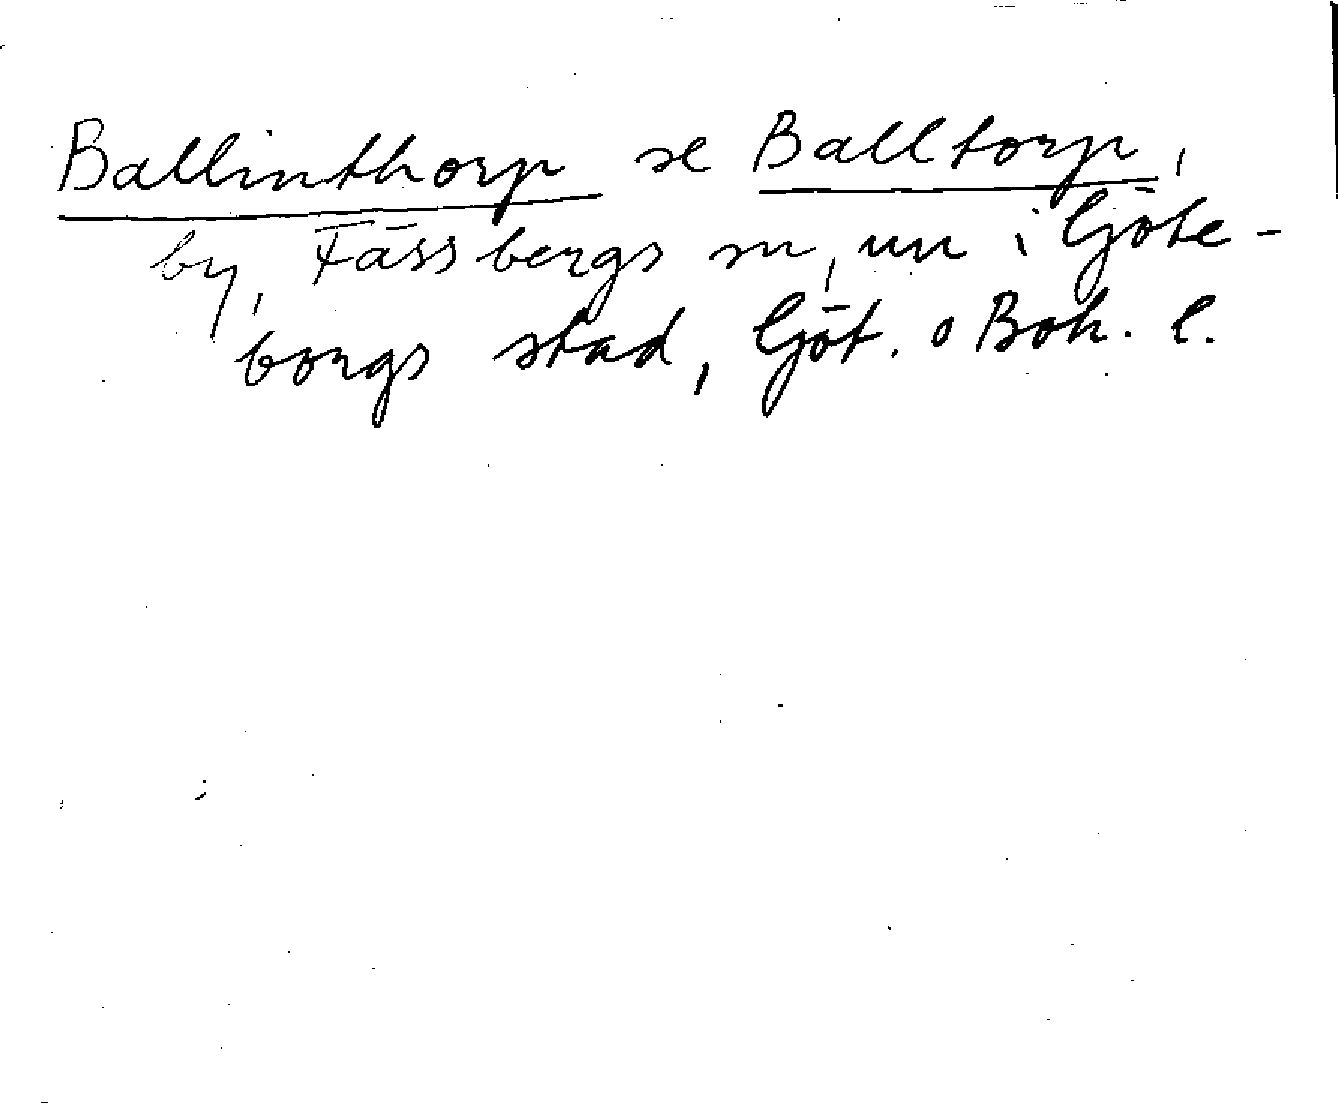 Ballinthorp se Balltorp,
by, Fässbergs sn, nu i Göte-
borgs stad, Göt. o Boh. l.